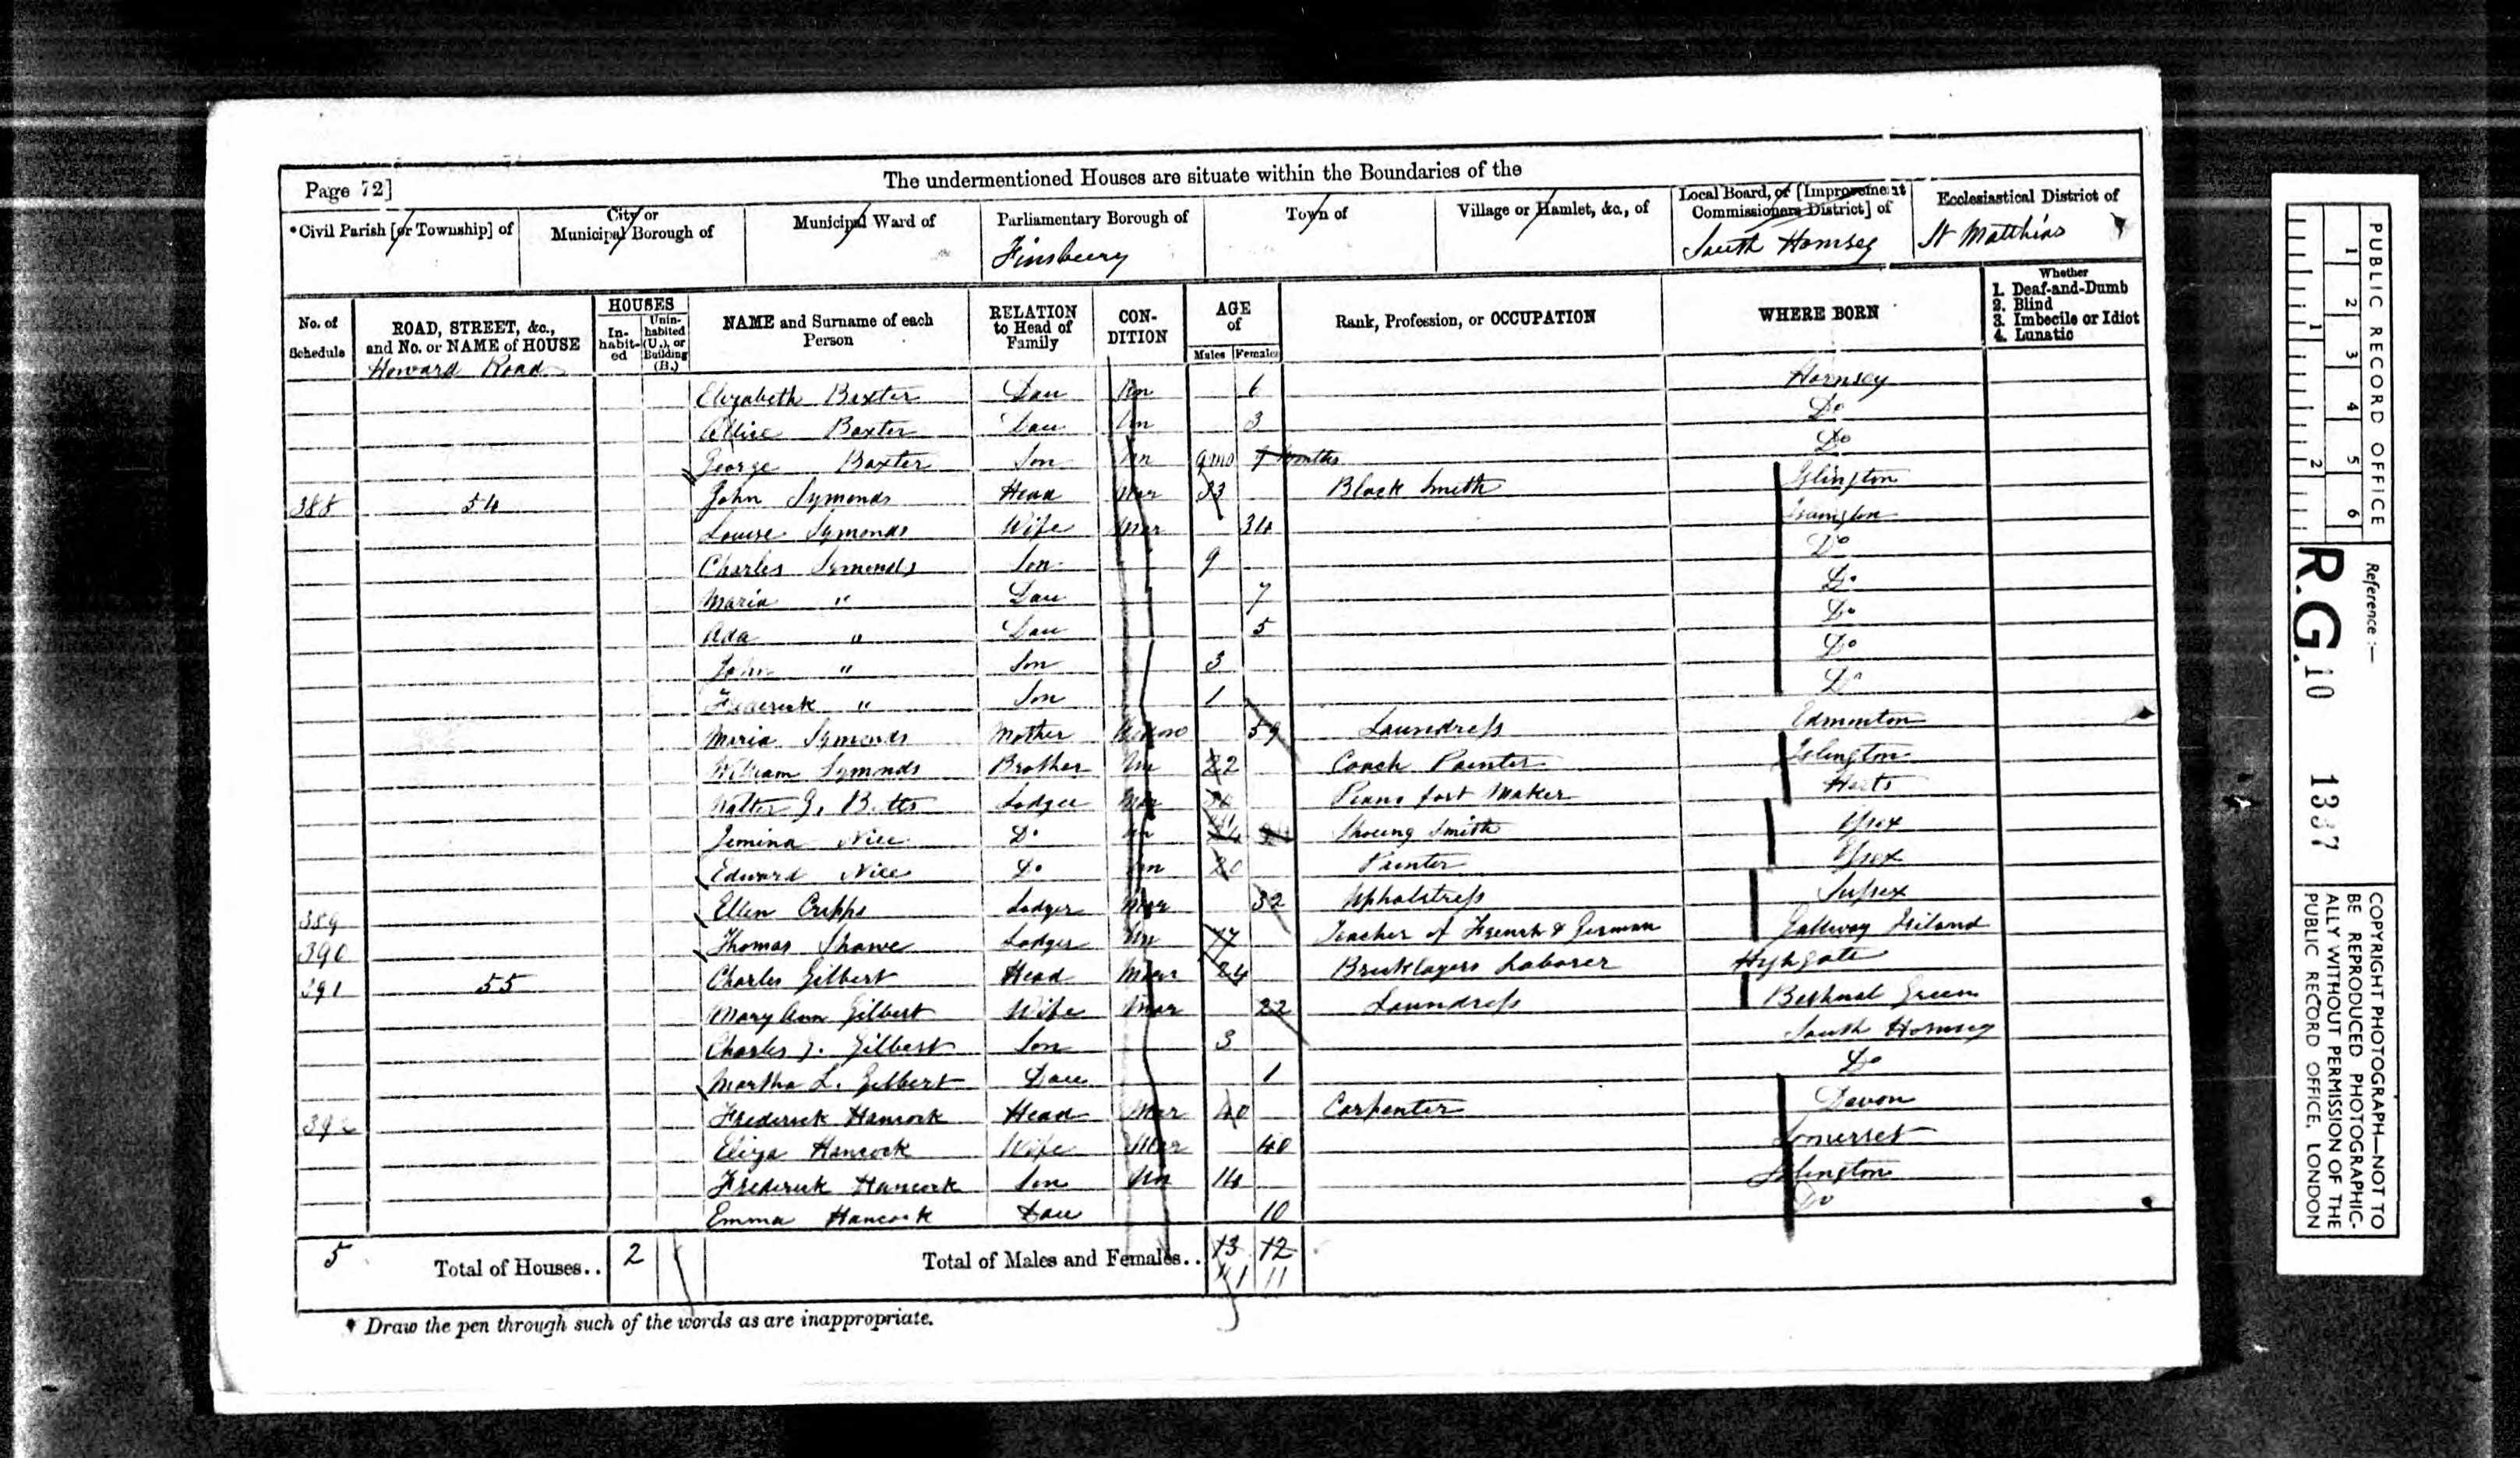 The undermentioned Houses are situate within the Boundaries of the
Page 72]
*Civil Parish [or Township] of
City or Municipal Borough of
Municipal Ward of
Parliamentary Borough of
Finsbury
Town of
Village or Hamlet, &c., of
Local Board, or [Improvement Commissioners District] of
South Hornsey
Ecclesiastical District of
St Matthias
No. of Schedule
ROAD, STREET, &c., and No. or NAME of HOUSE
HOUSES
In-habit-ed
Unin-habited (U.), or Building (B.)
NAME and Surname of each Person
RELATION to Head of Family
CON-DITION
AGE of
Males Females
Rank, Profession, or OCCUPATION
WHERE BORN
Whether
1. Deaf-and-Dumb
2. Blind
3. Imbecile or Idiot
4. Lunatic
Howard Road
Elizabeth Baxter Dau Un 6 Hornsey
Allice Baxter Dau Un 3 Do
George Baxter Son Un 9 mo Months Do
388 54 John Symonds Head Mar 33 Black Smith Islington
Louise Symonds Wife Mar 34
Charles Symonds Son 9 Do
Maria " Dau 7 Do
Ada " Dau 5 Do
John " Son 3 Do
Frederick " Son 1 Do
Maria Symonds Mother Widow 59 Laundress Edmonton
William Symonds Brother Un 22 Coach Painter Islington
Walter J. Betts Lodger Mar Piano fort Maker Herts
Jemina Nice Do Un Shoeing Smith Essex
Edward Nice Do Un 20 Painter Essex
389 Ellen Cripps Lodger Mar 32 Upholstress Sussex
390 Thomas Shawe Lodger Un Teacher of French & German Gallway Ireland
391 55 Charles Gilbert Head Mar 24 Bricklayers Laborer Highgate
Mary Ann Gilbert Wife Mar 22 Laundress Bethnal Green
Charles J. Gilbert Son 3 South Hornsey
Martha L. Gilbert Dau 1 Do
392 Frederick Hancock Head Mar 40 Carpenter Devon
Eliza Hancock Wife Mar 40 Somerset
Frederick Hancock Son Un 14 Islington
Emma Hancock Dau 10 Do
5 Total of Houses.. 2 Total of Males and Females.. 13 12
11
* Draw the pen through such of the words as are inappropriate.
PUBLIC RECORD OFFICE
1 2 3 4 5 6
1 2
Reference :-
R.G. 10 1337
COPYRIGHT PHOTOGRAPH—NOT TO
BE REPRODUCED PHOTOGRAPHIC-
ALLY WITHOUT PERMISSION OF THE
PUBLIC RECORD OFFICE, LONDON